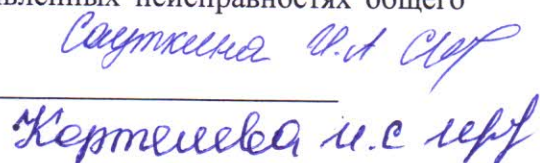 выявленных неисправностях общего
Сауткина И.А
Кортелева И.С